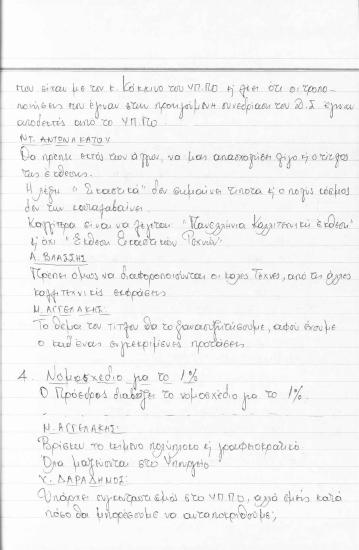 που είχαν με τον κ. Κόκκινο του ΥΠ.ΠΟ η λέει ότι οι τροπο-
ποιήσεις που έγιναν στην προηγούμενη συνεδρίαση του Δ.Σ έγιναν
αποδεκτές από το ΥΠ.ΠΟ.
ΝΤ. ΑΝΤΩΝΑΚΑΤΟΥ
Θα πρέπει εκτός των άλλων, να μας απασχολήσει λίγο η ο τίτλος
της έκθεσης.
Η λέξη "Εικαστικά" δεν σημαίνει τίποτα η ο πολύς κόσμος
δεν την καταλαβαίνει.
Καλλίτερα είναι να λέγεται "Πανελλήνια Καλλιτεχνική έκθεση"
η όχι "Έκθεση Εικαστικών Τεχνών".
Α. ΒΛΑΣΣΗΣ
Πρέπει όμως να διαφοροποιούνται οι καλές Τέχνες, από τις άλλες
καλλιτεχνικές εκφράσεις.
Μ. ΑΓΓΕΛΑΚΗΣ:
Το θέμα του τίτλου θα το ξανασυζητήσουμε, αφού έχουμε
ο καθένας συγκεκριμένες προτάσεις.
4. Νομοσχέδιο για το 1%
Ο Πρόεδρος διαβάζει το νομοσχέδιο για το 1%.
Μ. ΑΓΓΕΛΑΚΗΣ:
Βρίσκω το κείμενο πολύπλοκο η γραφειοκρατικό
Όλα μαζεύονται στο Υπουργείο
Χ. ΔΑΡΑΔΗΜΟΣ:
Υπάρχει συγκεντρωτισμός στο ΥΠ.ΠΟ, αλλά εμείς κατά
πόσο θα μπορέσουμε να ανταποκριθούμε;